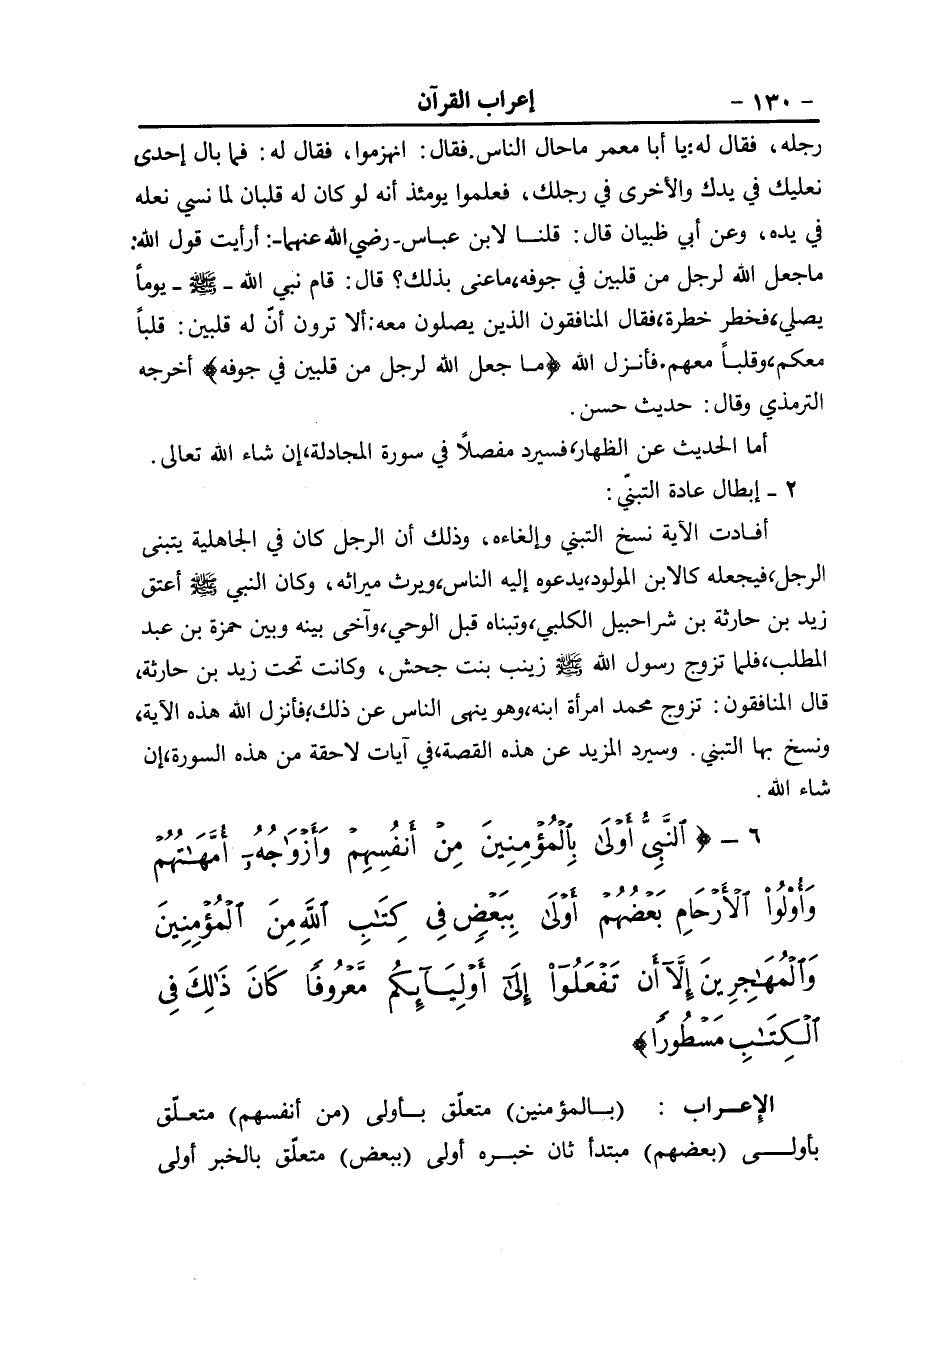 - ١٣٠ - إعراب القرآن
رجله، فقال له: يا أبا معمر ماحال الناس. فقال: انهزموا، فقال له: فما بال إحدى
نعليك في يدك والأخرى في رجلك، فعلموا يومئذ أنه لو كان له قلبان لما نسي نعله
في يده، وعن أبي ظبيان قال: قلنا لابن عباس - رضي الله عنهما -: أرأيت قول الله:
ماجعل الله لرجل من قلبين في جوفه، ماعنى بذلك؟ قال: قام نبي الله - ﷺ - يوماً
يصلي، فخطر خطرة، فقال المنافقون الذين يصلون معه: ألا ترون أنّ له قلبين: قلباً
معكم، وقلباً معهم. فأنزل الله ﴿ما جعل الله لرجل من قلبين في جوفه﴾ أخرجه
الترمذي وقال: حديث حسن.
أما الحديث عن الظهار، فسيرد مفصلاً في سورة المجادلة، إن شاء الله تعالى.
٢ - إبطال عادة التبنّي:
أفادت الآية نسخ التبني وإلغاءه، وذلك أن الرجل كان في الجاهلية يتبنى
الرجل، فيجعله كالابن المولود، يدعوه إليه الناس، ويرث ميراثه، وكان النبي ﷺ أعتق
زيد بن حارثة بن شراحبيل الكلبي، وتبناه قبل الوحي، وآخى بينه وبين حمزة بن عبد
المطلب، فلما تزوج رسول الله ﷺ زينب بنت جحش، وكانت تحت زيد بن حارثة،
قال المنافقون: تزوج محمد امرأة ابنه، وهو ينهى الناس عن ذلك؛ فأنزل الله هذه الآية،
ونسخ بها التبني. وسيرد المزيد عن هذه القصة، في آيات لاحقة من هذه السورة، إن
شاء الله.
٦ - ﴿ ٱلنَّبِيُّ أَوْلَىٰ بِٱلْمُؤْمِنِينَ مِنْ أَنفُسِهِمْ وَأَزْوَٰجُهُۥٓ أُمَّهَٰتُهُمْ
وَأُوْلُواْ ٱلْأَرْحَامِ بَعْضُهُمْ أَوْلَىٰ بِبَعْضٍ فِى كِتَٰبِ ٱللَّهِ مِنَ ٱلْمُؤْمِنِينَ
وَٱلْمُهَٰجِرِينَ إِلَّآ أَن تَفْعَلُوٓاْ إِلَىٰٓ أَوْلِيَآئِكُم مَّعْرُوفًا كَانَ ذَٰلِكَ فِى
ٱلْكِتَٰبِ مَسْطُورًا﴾
الإعراب: (بالمؤمنين) متعلّق بأولى (من أنفسهم) متعلّق
بأولى (بعضهم) مبتدأ ثان خبره أولى (ببعض) متعلّق بالخبر أولى